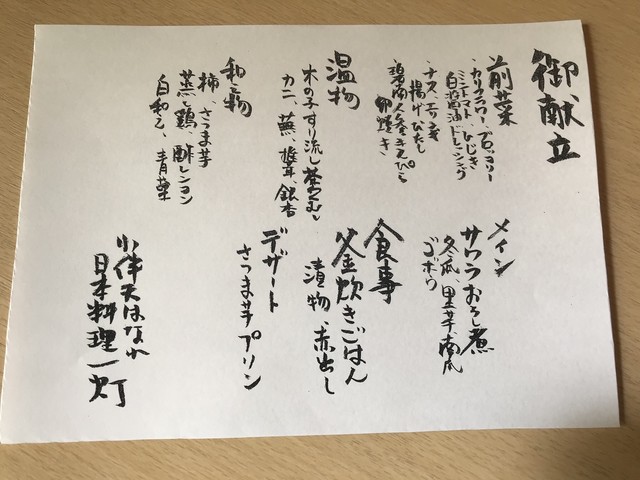 御献立
前菜
・カリフラワー、ブロッコリー
ミニトマト、ひじき
白醤油ドレッシング
・ナス、エリンギ
揚げびたし
・碧南人参きんぴら
卵焼き
温物
木の子すり流し茶わんむし
カニ、蕪、椎茸、銀杏
和え物
柿、さつま芋
蒸し鶏、酢レンコン
白和え、青菜
メイン
サワラおろし煮
冬瓜、里芋、南瓜
ゴボウ
食事
釜炊きごはん
漬物、赤出し
デザート
さつま芋プリン
小伴天はなれ
日本料理一灯